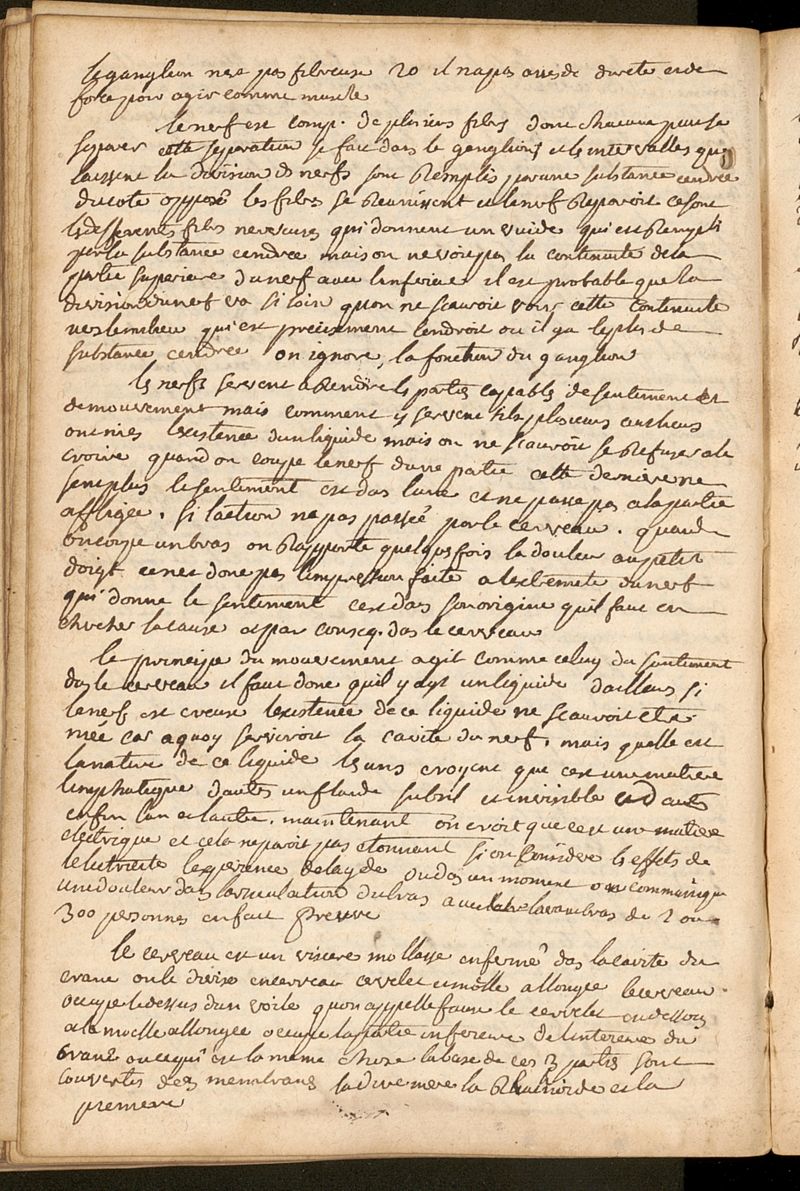 le ganglion nest pas fibreuse 20 il na pas asses de durete et de
force pour agir comme muscle
le nerf est comp. de plusieurs filets dont chacun peut se
separer cette separation se fait dans le ganglions et les intervalles que
laissent la division des nerfs sont remplis par une substance cendrée
du coté opposé les filets se reunissent et le nerf reparoit ce sont
les differents filets nerveux qui donnent un vuide qui est rempli
par la substance cendrée mais on ne voit pas la continuité de la
partie superieure du nerf avec linferieure il est probable que la
division du nerf va si loin quon ne scauroit voir cette continuité
vers le milieu qui est precisement lendroit ou il y a le plus de
substance cendrée on ignore la fonction du ganglion
les nerfs servent a rendre les parties capables de sentiment et
de mouvement mais comment y servent ils plusieurs autheurs
ont niés lexistence dun liquide mais on ne scauroit se refuser a le
croire quand on coupe le nerf dune partie cette derniere ne
sent plus le sentiment est dans lame et ne passe pas a la partie
affligée. si laction na pas passée par le cerveau. quand
on coupe un bras on rapporte quelques fois la douleur au petit
doigt ce nest donc pas limpression faite a lextremité du nerf
qui donne le sentiment cest dans son origine quil faut en
chercher la cause et par conseq. dans le cerveau
le principe du mouvement agit comme celuy du sentiment
dans le cerveau il faut donc quil y ayt un liquide dailleurs si
le nerf est creux lexistence de ce liquide ne scauroit etre
niée car a quoy serviroit la cavite du nerf. mais quelle est
la nature de ce liquide les uns croyent que cest une matiere
limphatique dautres un fluide subtil et invisible et dautres
enfin lun et lautre. maintenant on croit que cest une matiere
electrique et cela ne paroit pas etonnant si on considere les effets de
lelectricité lexperience de ou dans un moment on communique
une douleur dans larticulation du bras avec lavanbras de 2 ou
300 personnes en fait preuve
le cerveau est un viscere mollasse enfermé dans la cavite du
crane on le divise en cerveau cervelet et moille allongée le cerveau
occupe le dessus dun voile quon appelle faux le cervelet en dessous
a la moille allongée occupe la partie inferieure de linterieure du
crane ou ce qui est la meme chose la base de ces 3 parties sont
couvertes des membranes la dure mere la rachnoide et la
piemere